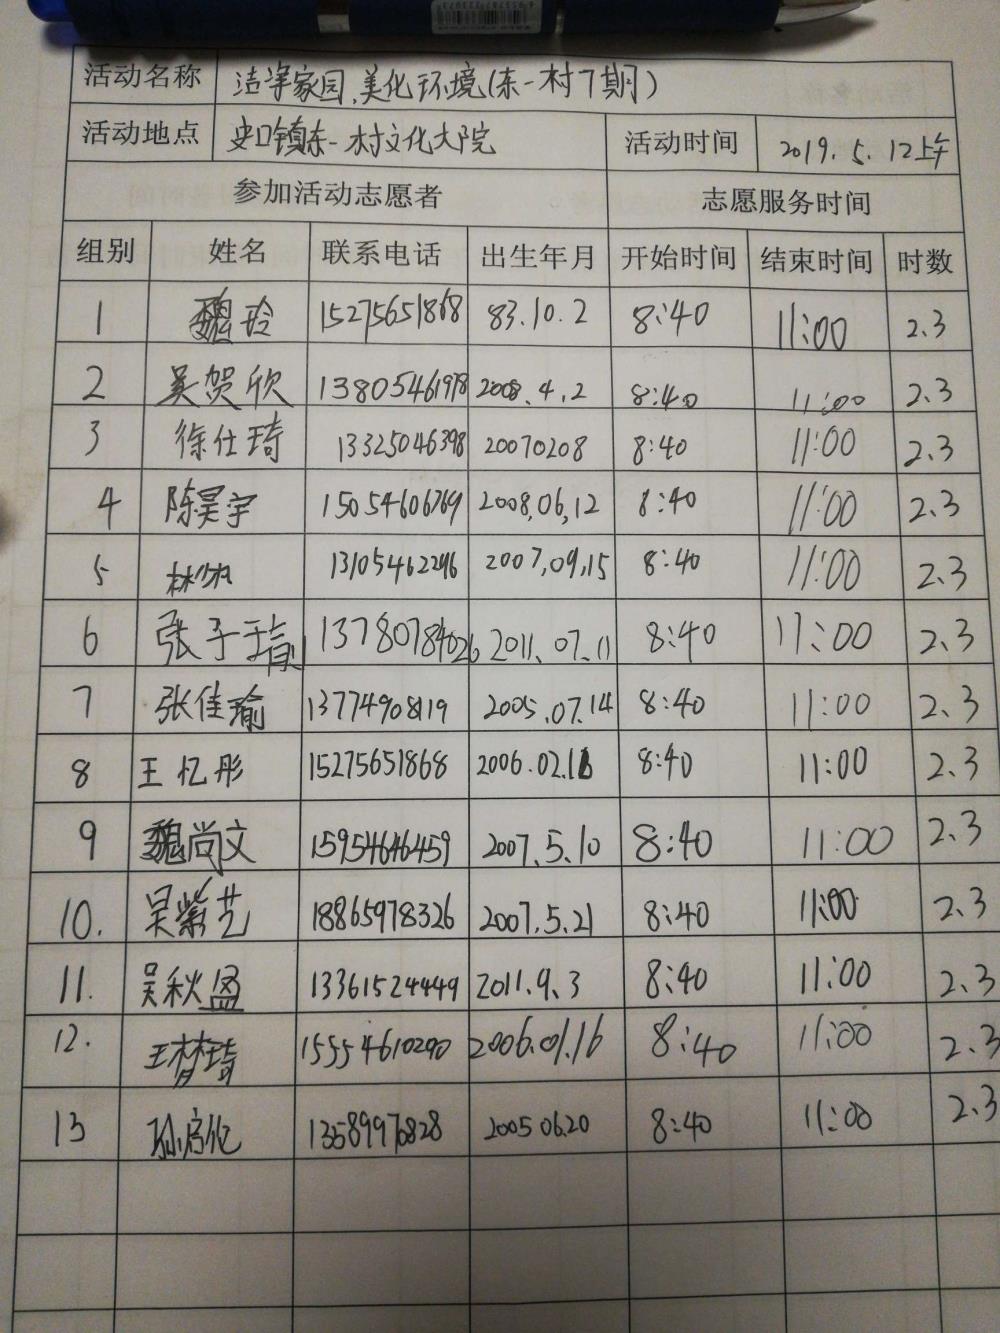 活动名称 洁净家园、美化环境(东一村7期)
活动地点 史口镇东一村文化大院 活动时间 2019.5.12上午
参加活动志愿者 志愿服务时间
组别 姓名 联系电话 出生年月 开始时间 结束时间 时数
1 魏玲 15275651868 83.10.2 8:40 11:00 2.3
2 吴贺欣 13805461978 2008.4.2 8:40 11:00 2.3
3 徐仕琦 13325046398 20070208 8:40 11:00 2.3
4 陈昊宇 15054606769 2008,06,12 8:40 11:00 2.3
5 13105462296 2007,09,15 8:40 11:00 2.3
6 张子 13780784026 2011.07.11 8:40 11:00 2.3
7 张佳瑜 13774908119 2005.07.14 8:40 11:00 2.3
8 王忆彤 15275651868 2006.02.16 8:40 11:00 2.3
9 魏尚文 15954646459 2007.5.10 8:40 11:00 2.3
10. 吴紫艺 18865978326 2007.5.21 8:40 11:00 2.3
11. 吴秋盈 13361524449 2011.9.3 8:40 11:00 2.3
12. 王梦琦 15554610290 2006.01.16 8:40 11:00 2.3
13 13589976828 2005 06.20 8:40 11:00 2.3